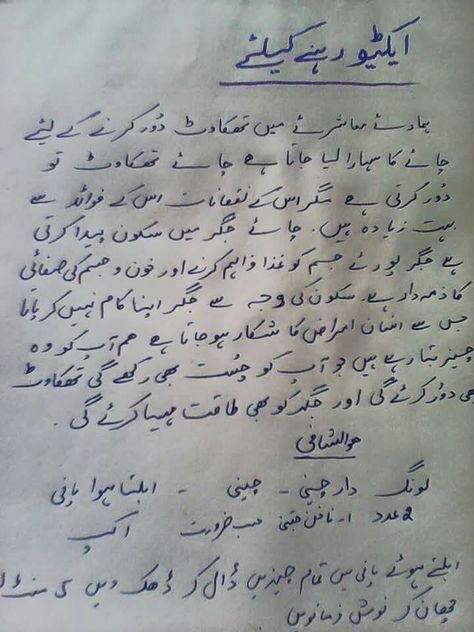 ایکٹیو رہنے کیلئے
ہمارے معاشرے میں تھکاوٹ دُور کرنے کے لیئے
چائے کا سہارا لیا جاتا ہے چائے تھکاوٹ تو
دُور کرتی ہے مگر اس کے نقصانات اس کے فوائد سے
بہت زیادہ ہیں۔ چائے جگر میں سکون پیدا کرتی
ہے جگر پورے جسم کو غذا فراہم کرنے اور خون و جسم کی صفائی
کا ذمہ دار ہے۔ سکون کی وجہ سے جگر اپنا کام نہیں کر پاتا
جس سے انسان امراض کا شکار ہو جاتا ہے ہم آپ کو وہ
چیز بتا رہے ہیں جو آپ کو چُست بھی رکھے گی تھکاوٹ
بھی دُور کرئے گی اور جگر کو بھی طاقت مہیا کرئے گی۔
ھوالشافی
لونگ دار چینی - چینی - ابلتا ہوا پانی
2 عدد ا۔ ناخن جتنی حسب ضرورت ا کپ
ابلتے ہوئے پانی میں تمام چیزیں ڈال کر ڈھک دیں منٹ
چھان کر نوش فرمائیں